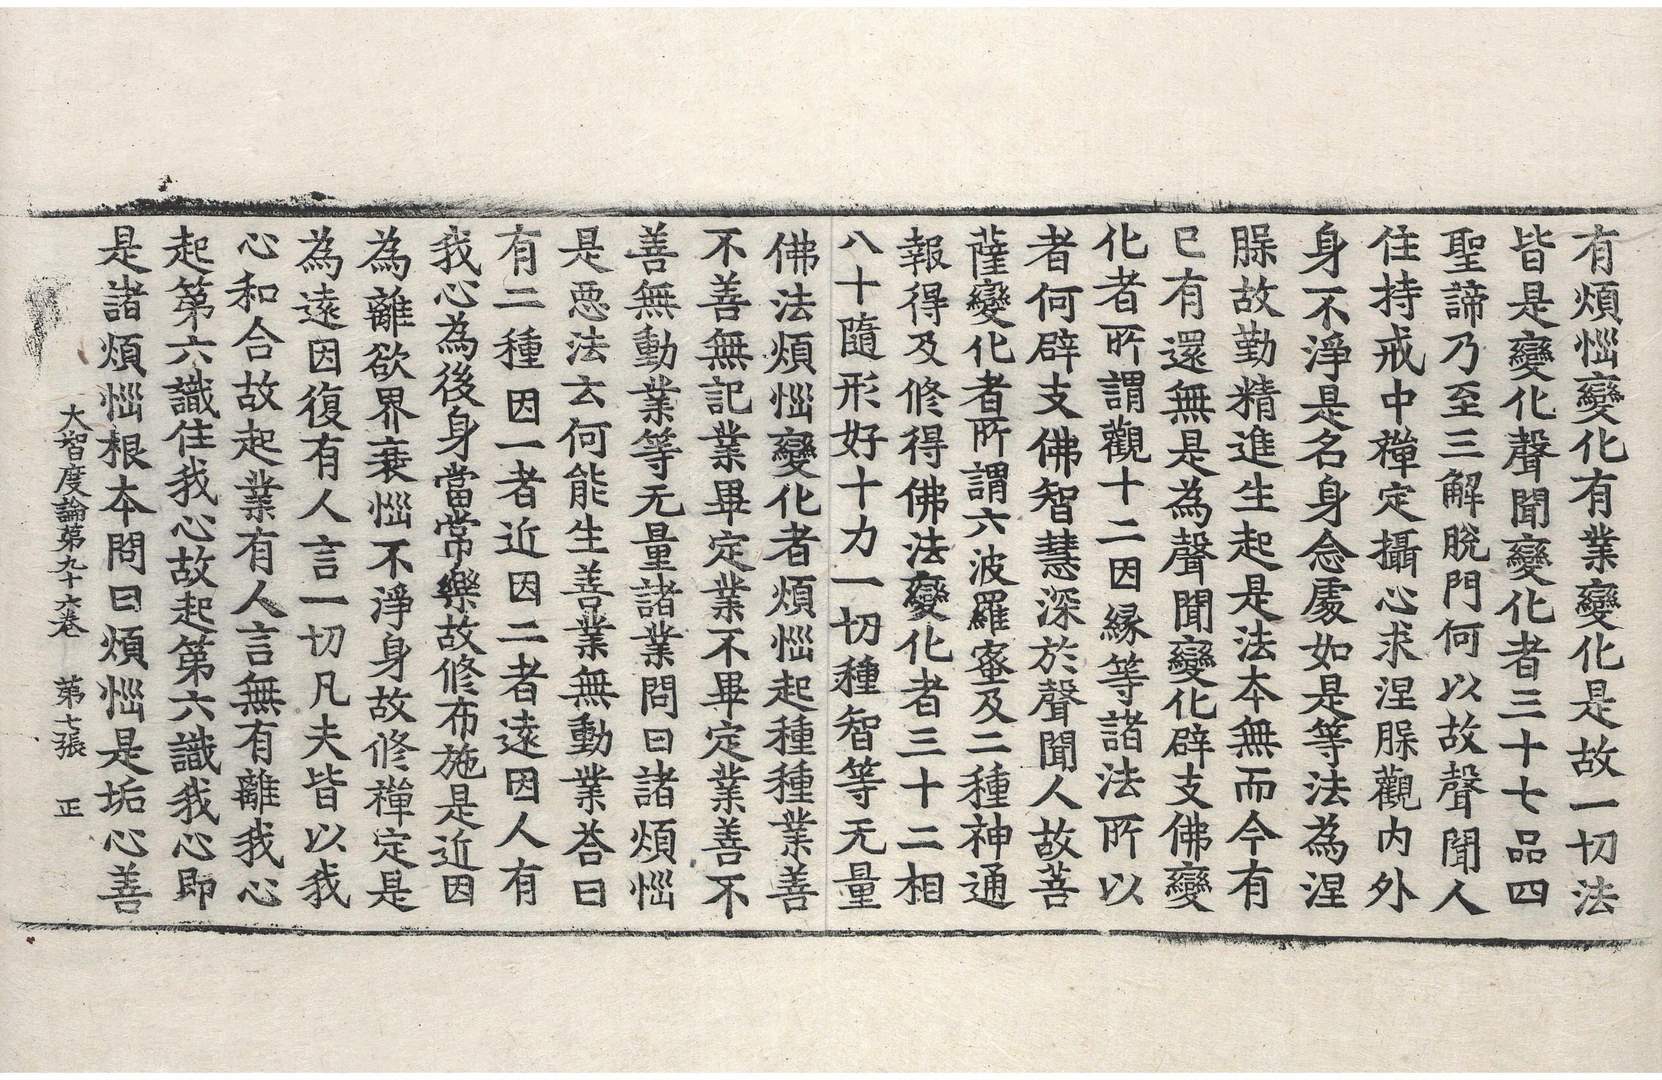 有煩惱變化有業變化是故一切法
皆是變化聲聞變化者三十七品四
聖諦乃至三解脫門何以故聲聞人
住持戒中禪定攝心求涅脲觀內外
身不淨是名身念處如是等法為涅
脲故勤精進生起是法本無而今有
已有還無是為聲聞變化辟支佛變
化者所謂觀十二因緣等諸法所以
者何辟支佛智慧深於聲聞人故菩
薩變化者所謂六波羅蜜及二種神通
報得及修得佛法變化者三十二相
八十隨形好十力一切種智等无量
佛法煩惱變化者煩惱起種種業善
不善無記業畢定業不畢定業善不
善無動業等无量諸業問曰諸煩惱
是惡法云何能生善業無動業荅曰
有二種因一者近因二者遠因人有
我心為後身當常樂故修布施是近因
為離欲界衰惱不淨身故修禪定是
為遠因復有人言一切凡夫皆以我
心和合故起業有人言無有離我心
起第六識住我心故起第六識我心即
是諸煩惱根本問曰煩惱是垢心善
大智度論第九十六卷 第七張 正